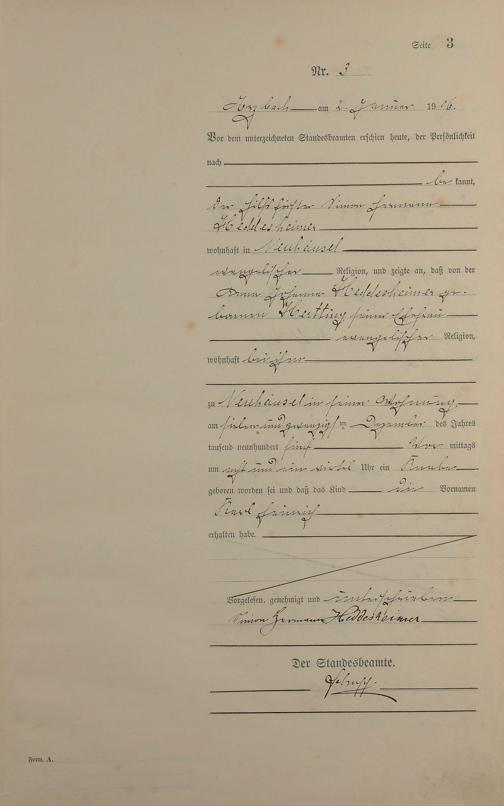 Seite 3
Nr. 3
am 2. Januar 1906.
Vor dem unterzeichneten Standesbeamten erschien heute, der Persönlichkeit
nach
be kannt,
der Hilfsförster Simon Hermann
Heddesheimer
wohnhaft in Neuhäusel
evangelischer Religion, und zeigte an, daß von der
Anna Johanna Heddesheimer ge-
borenen Hertling seiner Ehefrau
evangelischer Religion,
wohnhaft bei ihm
zu Neuhäusel in seiner Wohnung
am sieben und zwanzigsten Dezember des Jahres
tausend neunhundert fünf Vor mittags
um acht und ein viertel Uhr ein Knabe
geboren worden sei und daß das Kind die Vornamen
Karl Heinrich
erhalten habe.
Vorgelesen, genehmigt und unterschrieben
Simon Hermann Heddesheimer
Der Standesbeamte.
Form. A.